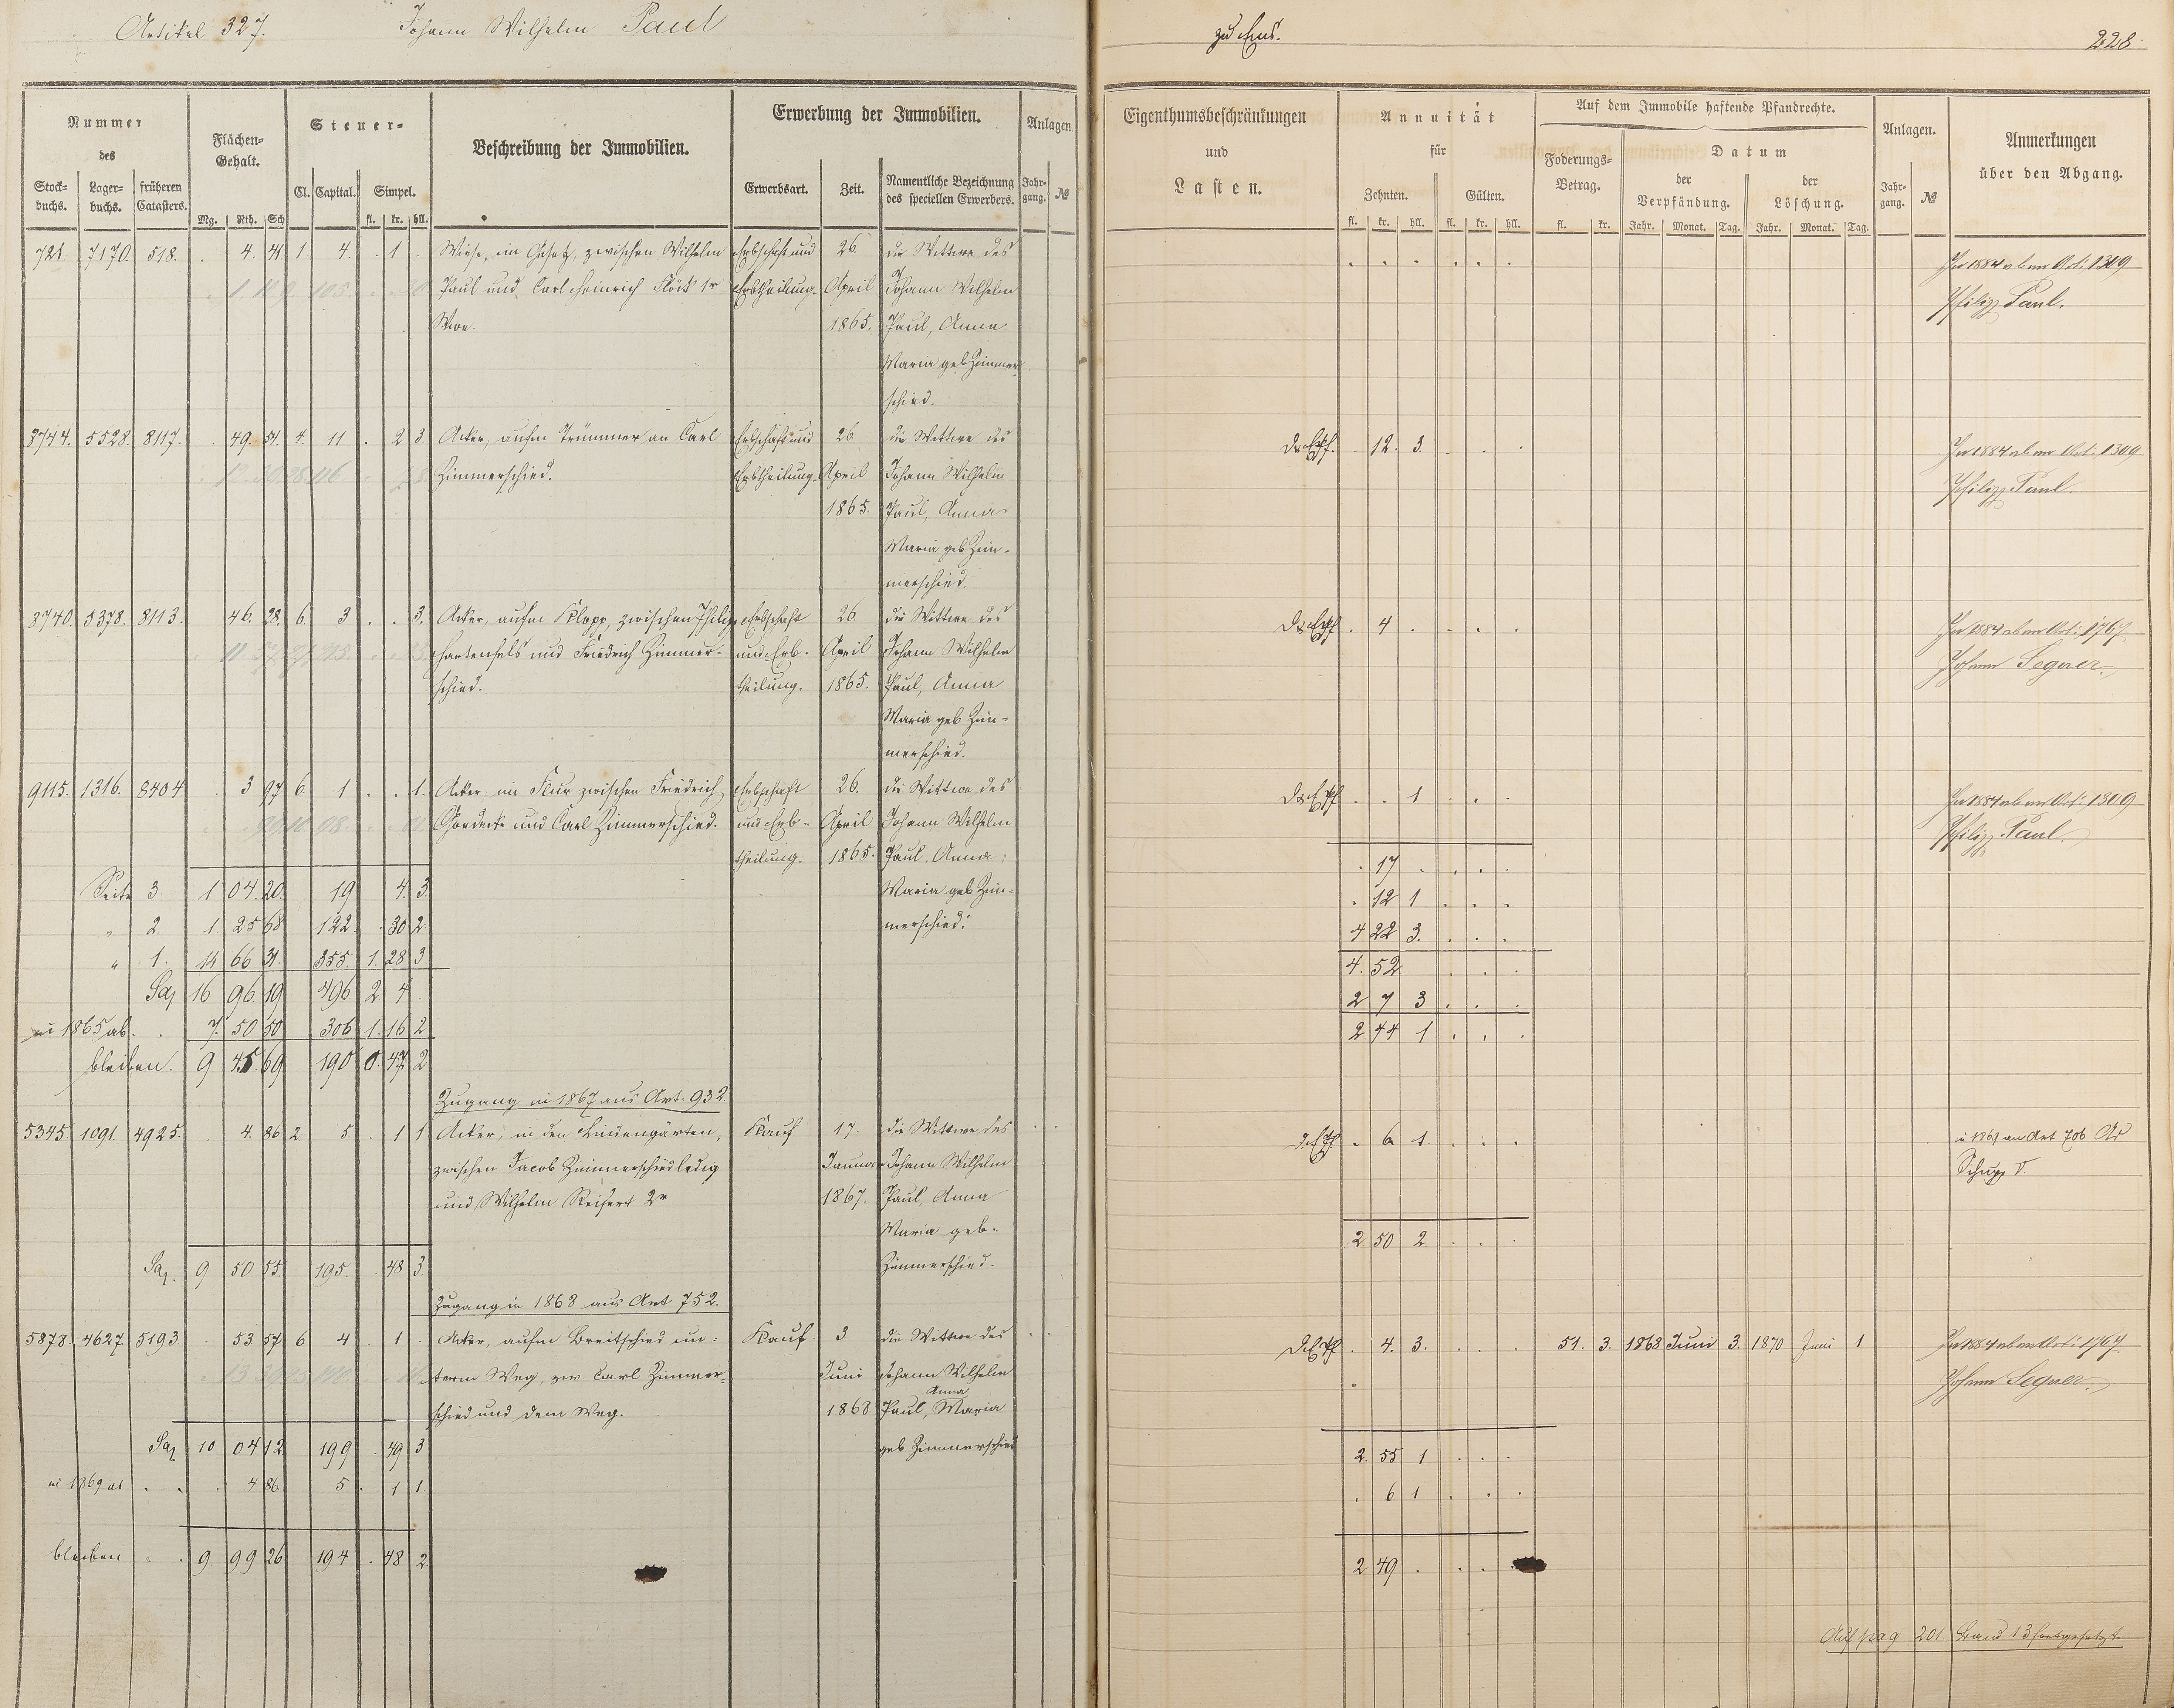 Artikel 327. Johann Wilhelm Paul zu Ems. 228
Nummer des
Stockbuchs. Lagerbuchs. früheren Catasters.
Flächen-Gehalt.
Mg. Rth. Sch
Steuer-
Cl. Capital. Simpel.
fl. kr. hll.
Beschreibung der Immobilien.
Erwerbung der Immobilien.
Erwerbsart. Zeit. Namentliche Bezeichnung des speciellen Erwerbers.
Anlagen
Jahrgang. №
Eigenthumsbeschränkungen
und
Lasten.
Annuität
für
Zehnten. Gülten.
fl. kr. hll. fl. kr. hll.
Auf dem Immobile haftende Pfandrechte.
Foderungs-Betrag.
fl. kr.
Datum
der Verpfändung. der Löschung.
Jahr. Monat. Tag. Jahr. Monat. Tag.
Anlagen.
Jahrgang. №
Anmerkungen
über den Abgang.
721. 7170. 518. . 4. 41. 1. 4. . 1 . Wiese, im Gesetz, zwischen Wilhelm Erbschaft und 26. die Wittwe des In 1884 ab an Art. 1309
Paul und Carl Heinrich Flöck 1r Erbtheilung. April Johann Wilhelm Philipp Paul.
Wwe. 1865. Paul, Anna
Maria geb Zimmer
schied.
3744. 5528. 8117. . 49. 54. 4. 11 . 2 3. Acker, aufm Trümmer an Carl Erbschaft und 26 die Wittwe des 12. 3. In 1884 ab an Art. 1309
Zimmerschied. Erbtheilung. April Johann Wilhelm Philipp Paul.
1865. Paul, Anna
Maria geb Zim-
merschied.
3740. 5378. 8113. 46. 28. 6. 3 . . 3. Acker, aufm Klopp, zwischen Philipp Erbschaft 26 die Wittwe des . 4 In 1884 ab an Art. 1767
Hartenfels und Friedrich Zimmer- und Erb- April Johann Wilhelm Johann
schied. theilung. 1865. Paul, Anna
Maria geb Zim-
merschied.
9115. 1316. 8404 . 3 97 6. 1 . . 1. Acker im Flur zwischen Friedrich Erbschaft 26. die Wittwe des . . 1 In 1884 ab an Art. 1309
und Carl Zimmerschied. und Erb- April Johann Wilhelm Philipp Paul.
theilung. 1865. Paul. Anna . 17
Seite 3 1 04. 20. 19 4. 3. Maria geb Zim- . 12 1
" 2 1. 25 68 122. 30 2 merschied. 4 22 3.
" 1. 14 66 31. 355. 1. 28 3 4. 52
Sa 16 96 19 496 2. 4 . 2 7 3
in 1865 ab. 7. 50 50 306 1. 16 2 2. 44 1
bleiben. 9 45. 69 190 0. 47 2
Zugang in 1867 aus Art. 932.
5345. 1091. 4925. . 4. 86 2 5. . 1 1 Acker, in den Lindengärten, Kauf 17. die Wittwe des . 6 1. in 1869 an Art 706
zwischen Jacob Zimmerschied ledig Januar Johann Wilhelm Schupp V.
und Wilhelm Reifert 2r 1867. Paul, Anna
Maria geb. 2 50 2
Sa. 9 50 55. 195. . 48 3. Zimmerschied.
Zugang in 1868 aus Art 752.
5878. 4627 5193 . 53 57 6 4 . 1 . Acker, aufm Breitschied un- Kauf. 3 die Wittwe des . 4. 3. 51. 3. 1868 Juni 3. 1870 Juni 1 In 1884 ab an Art. 1767
term Weg, zw Carl Zimmer- Juni Johann Wilhelm Johann
schied und dem Weg. 1868 Paul, Anna Maria
Sa 10 04 12 199 . 49 3 geb Zimmerschied 2. 55 1
in 1869 ab . . . 4 86 5 . 1 1. . 6 1
bleiben . . 9. 99 26 194 . 48 2 2 49 .
Auf pag 201 Band 13 fortgesetzt.